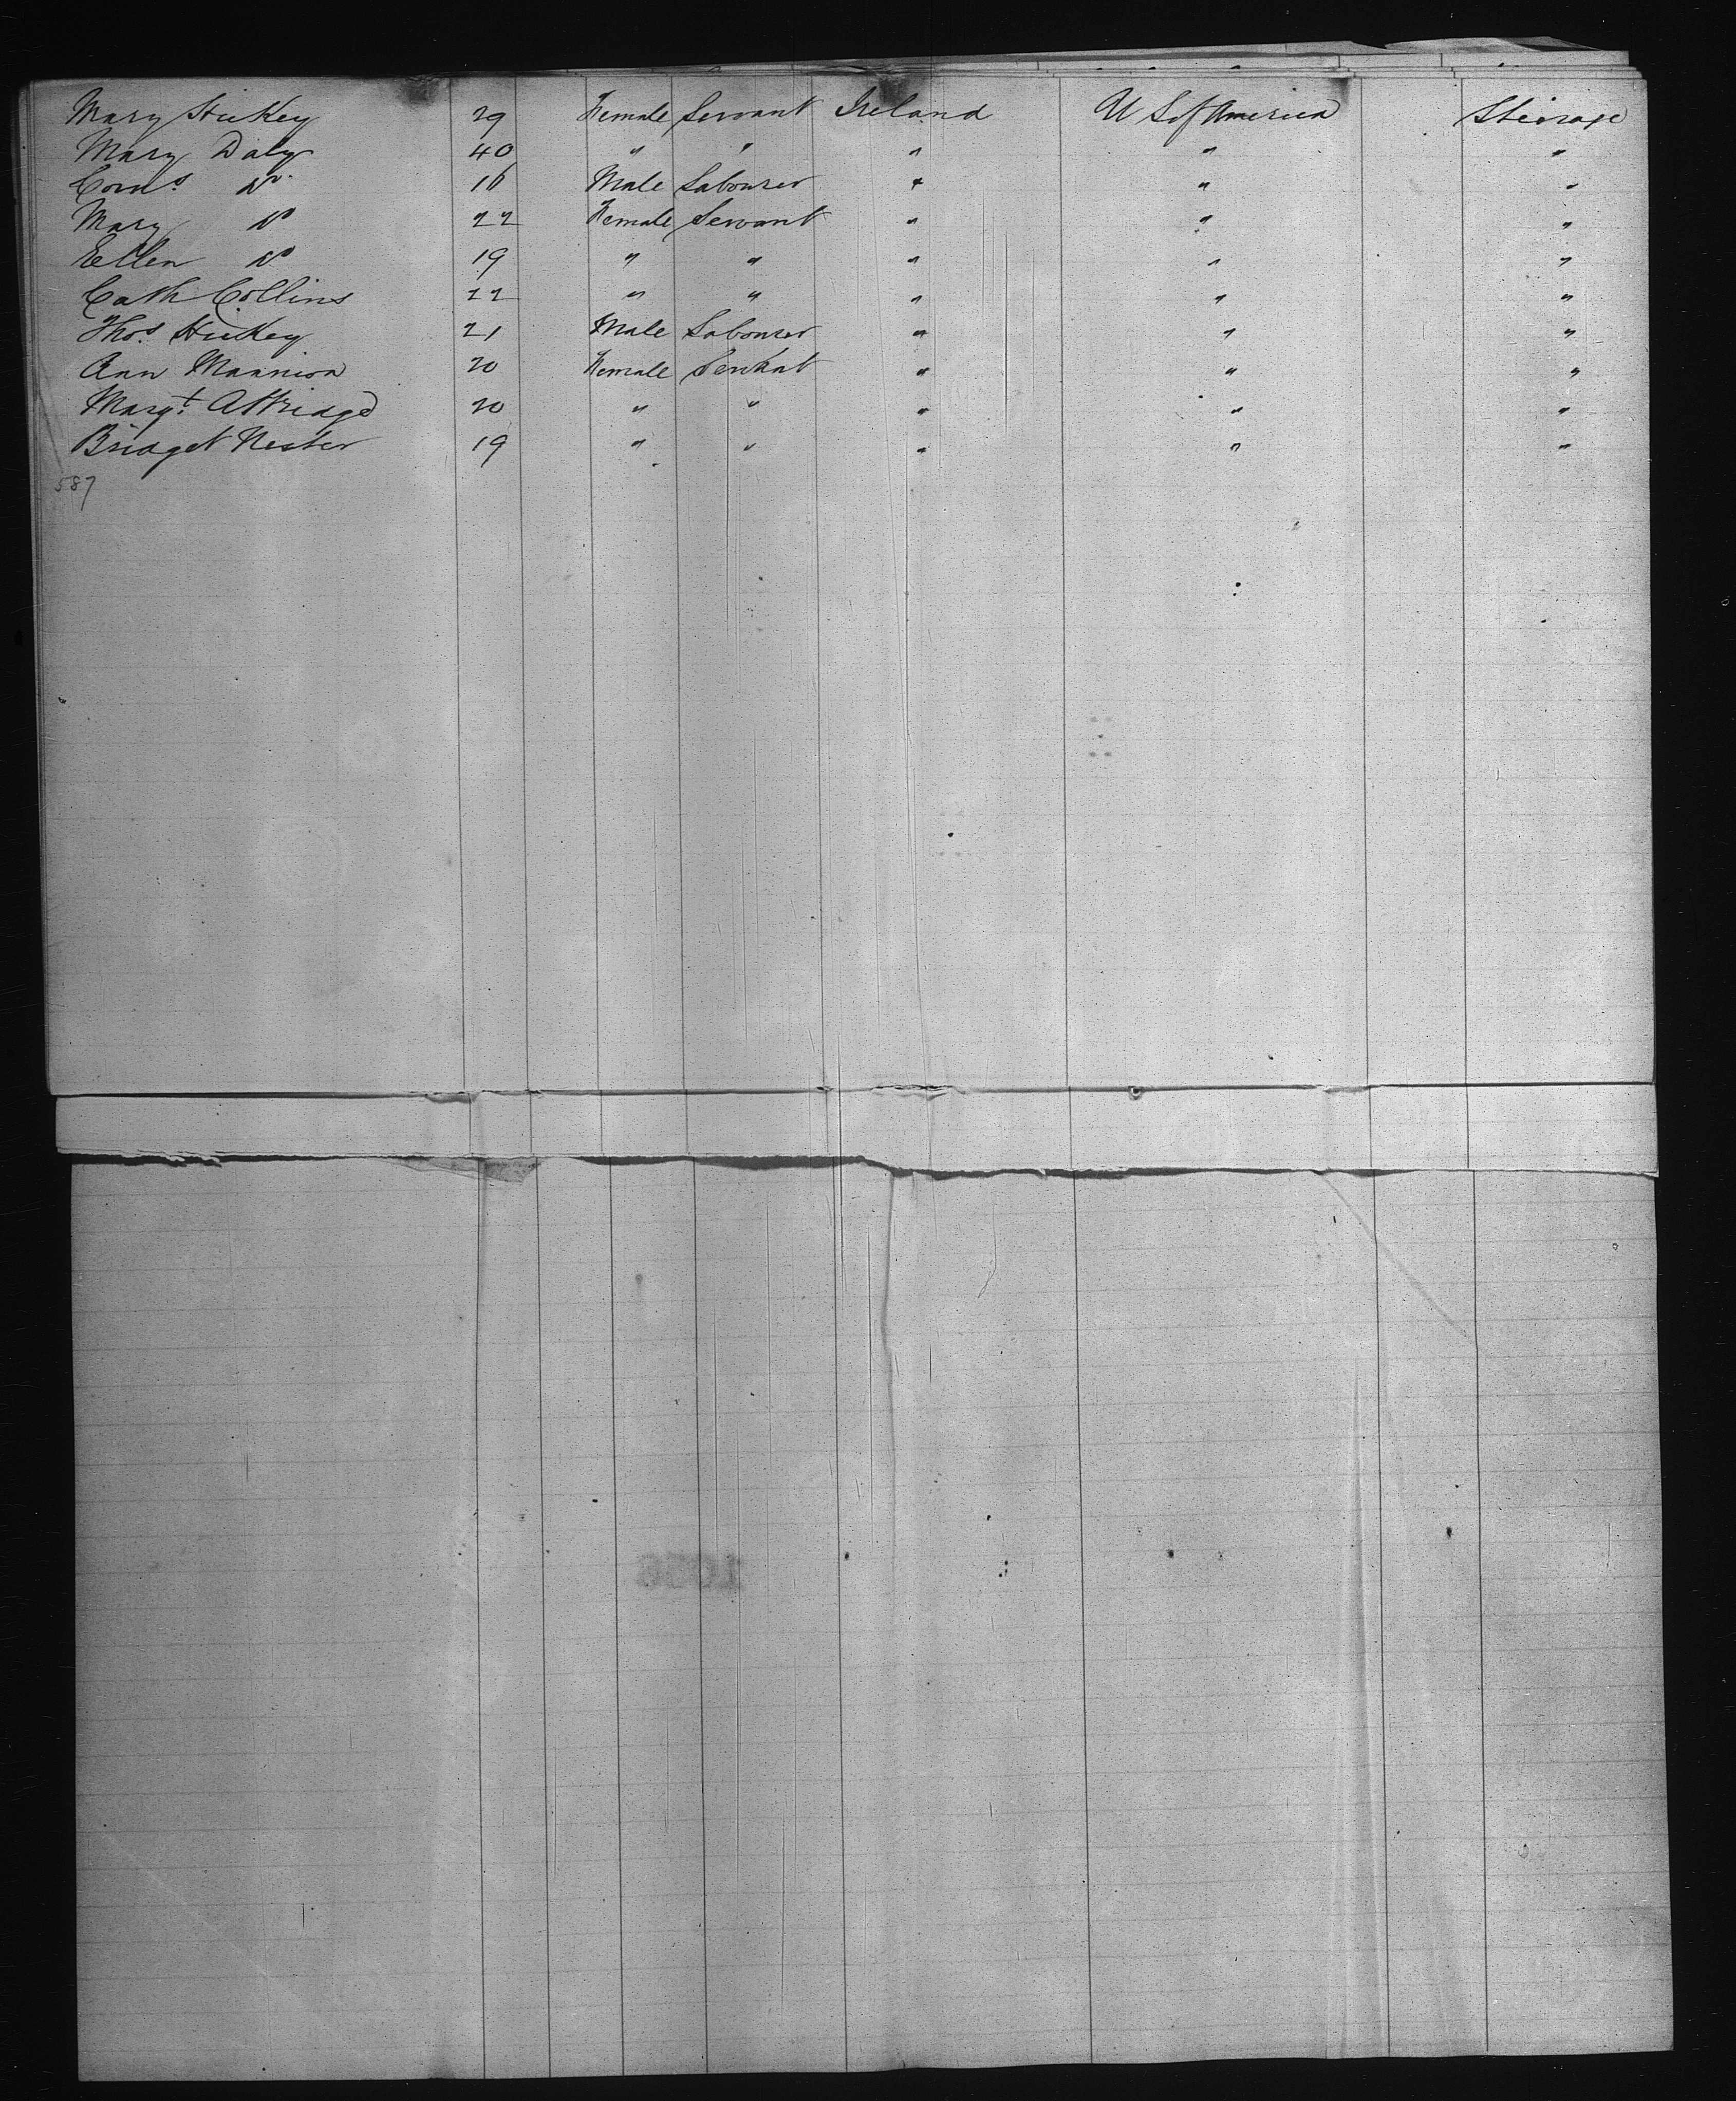 Mary Hickey 29 Female Servant Ireland U S of America Steerage
Mary Daly 40 " " " " "
Corns Do 16 Male Labourer " " "
Mary Do 22 Female Servant " " "
Ellen Do 19 " " " " "
Cath Collins 22 " " " " "
Thos. Hickey 21 Male Labourer " " "
Ann Mannion 20 Female " " "
Margt. Attridge 20 " " " " "
Bridget Nester 19 " " " " "
587